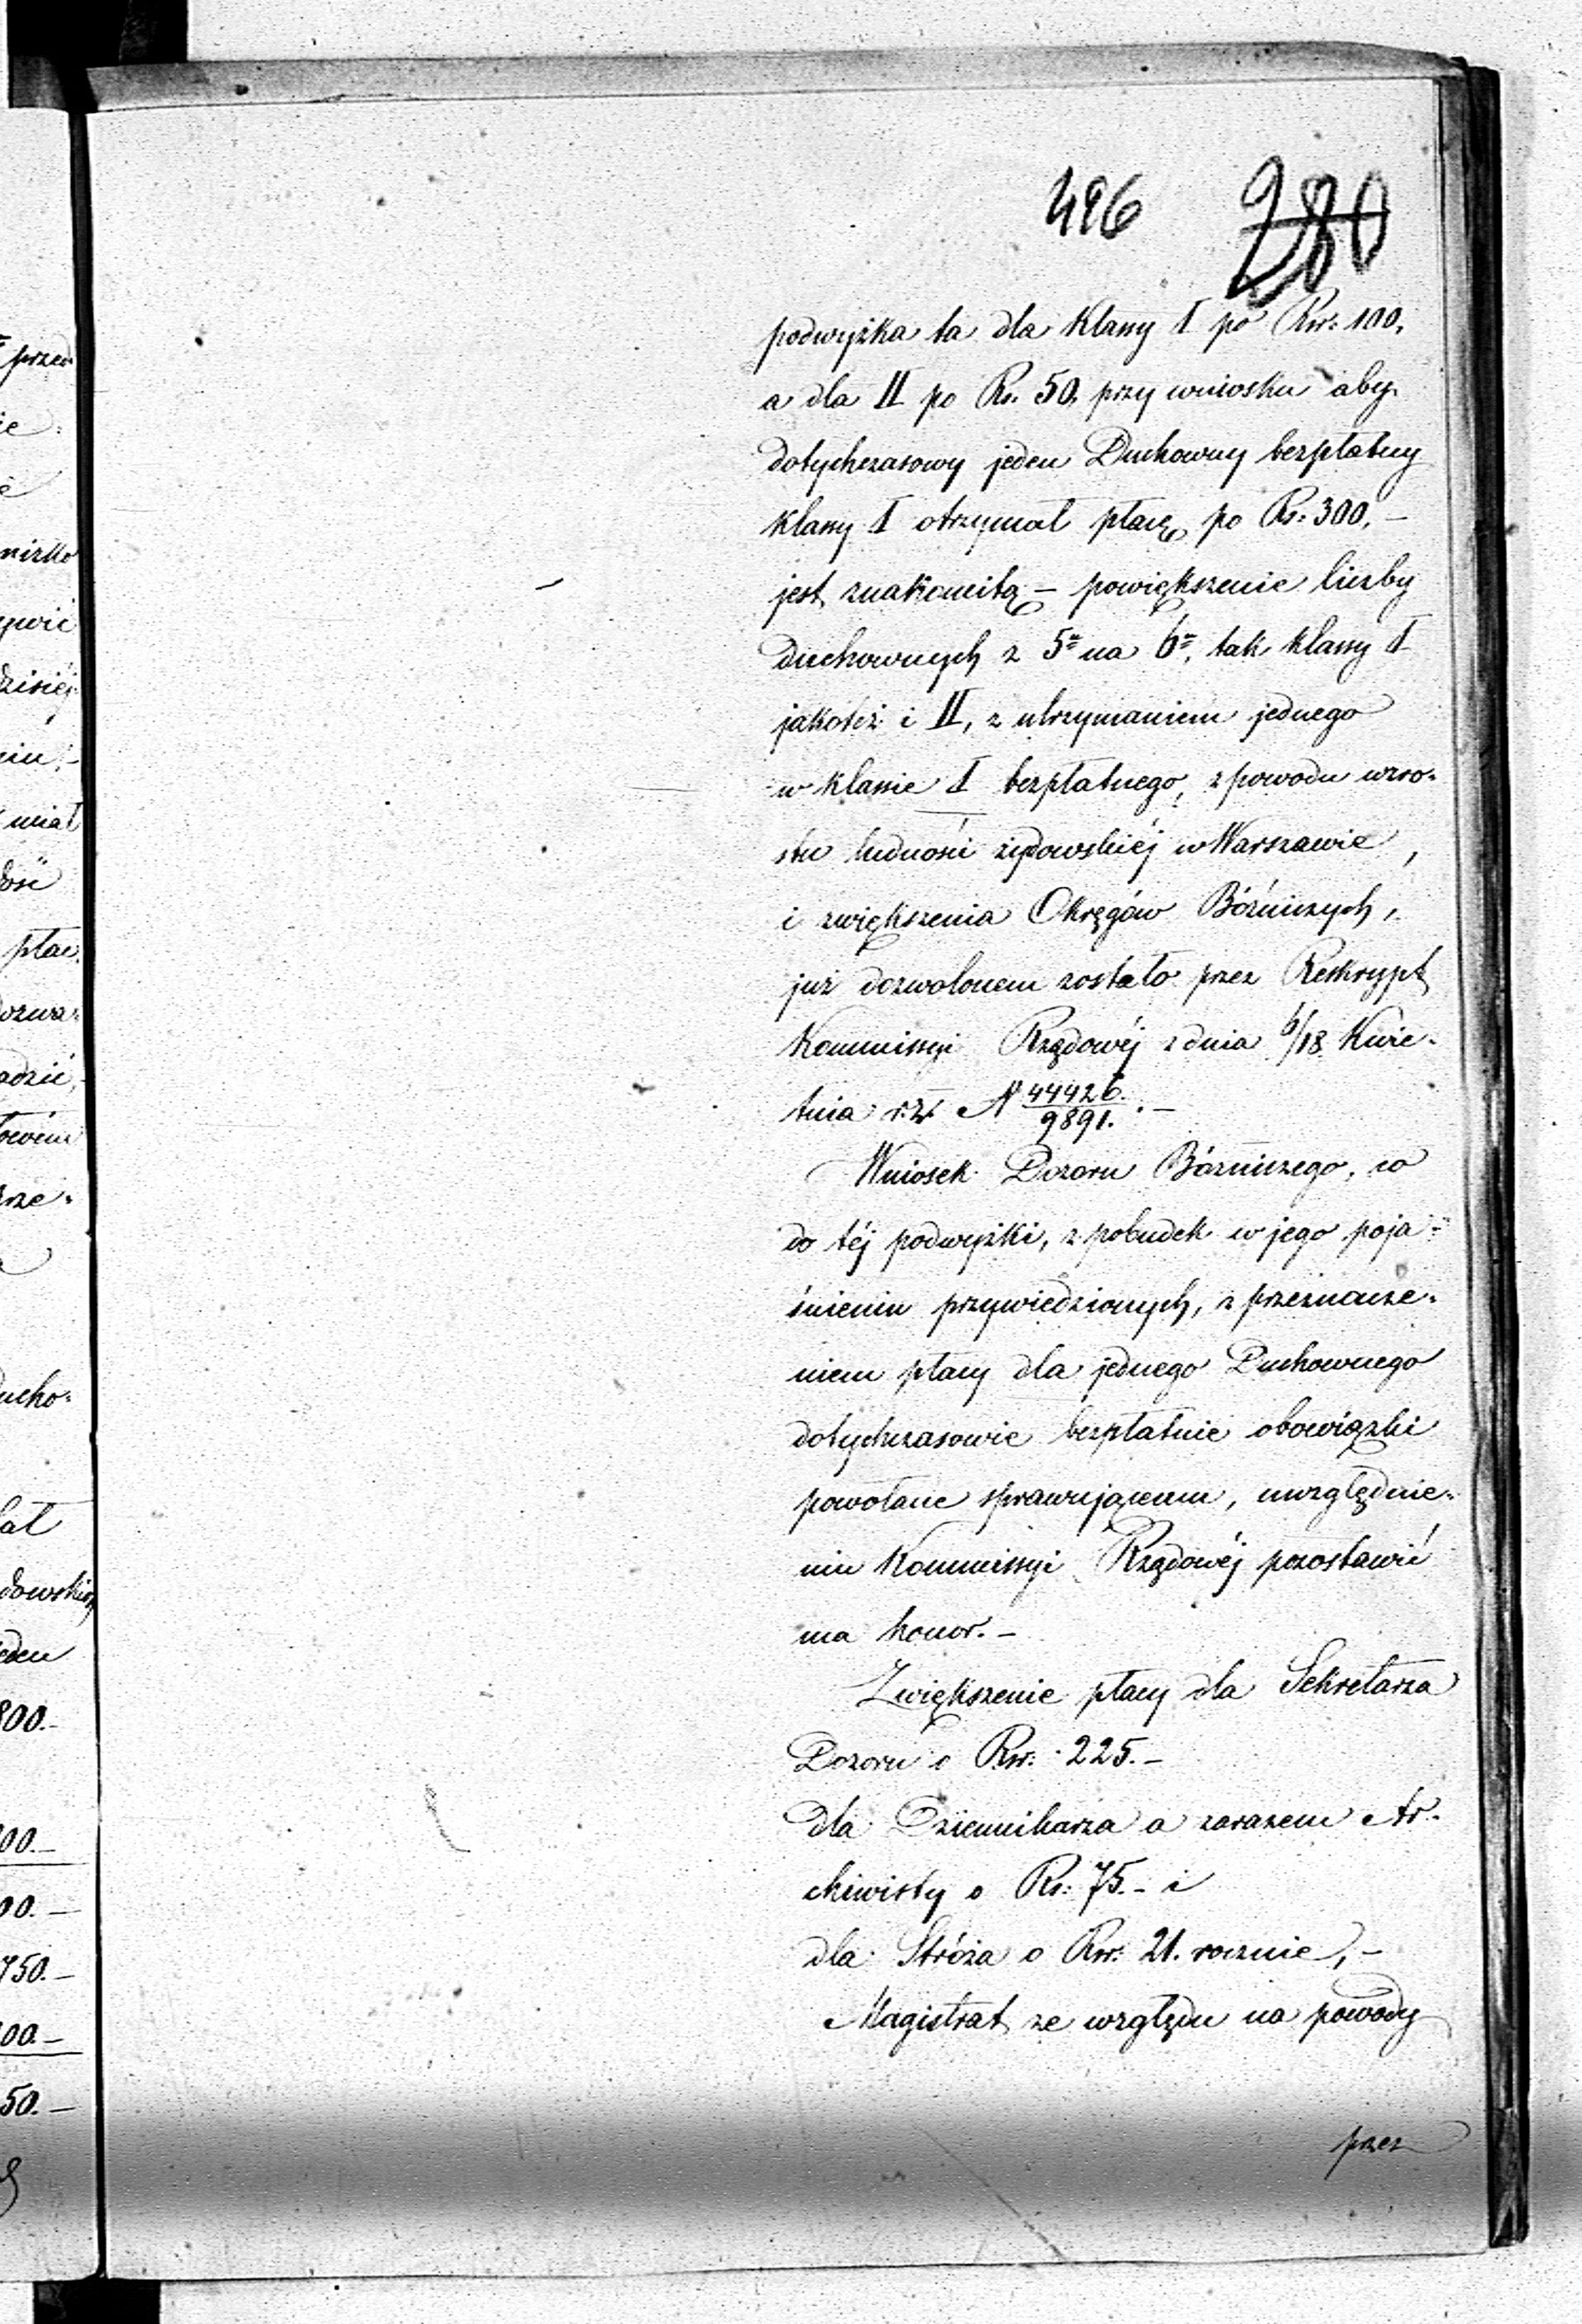 496 280
podwyżka ta dla Klassy I po Rsr: 100,
a dla II po Rs. 50, przy wniosku aby
dotychczasowy jeden Duchowny bezpłatny
klassy I otrzymał płacę po Rs: 300, –
jest znakomitą – powiększenie liczby
duchownych z 5u na 6u, tak klassy I
jakoteż i II, z utrzymaniem jednego
w klassie I bezpłatnego, z powodu wzro-
stu ludności żydowskiéj w Warszawie,
i zwiększenia Okręgów Bóźniczych,
już dozwolonem zostało przez Reskrypt
Kommissyi Rządowéj z dnia 6/18 Kwie-
tnia r. z. N 44426/9891. –
Wniosek Dozoru Bóżniczego, co
do téj podwyżki, z pobudek w jego poja-
śnieniu przywiedzionych, z przeznacze-
niem płacy dla jednego Duchownego
dotychczasowie bezpłatnie obowiązki
powołane sprawującemu, uwzględnie-
niu Kommissyi Rządowéj pozostawić
ma honor. –
Zwiększenie płacy dla Sekretarza
Dozoru o Rsr: 225. –
dla Dziennikarza a zarazem Ar-
chiwisty o Rs: 75. – i
dla Stróża o Rsr: 21. rocznie, –
Magistrat ze względu na powody
przez